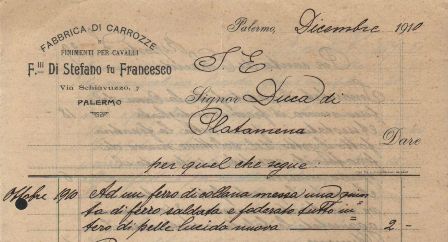 FABBRICA DI CARROZZE
FINIMENTI PER CAVALLI
F.lli Di Stefano fu Francesco
Via Schiavuzzo, 7
PALERMO
Palermo, Dicembre 1910
S E
Signor Duca di
Platamena
Dare
per quel che segue:
Ottobre 1910 Ad un ferro di collana messa una giun
ta di ferro saldata e foderato tutto in
tero di pelle lucida nuova 2 -